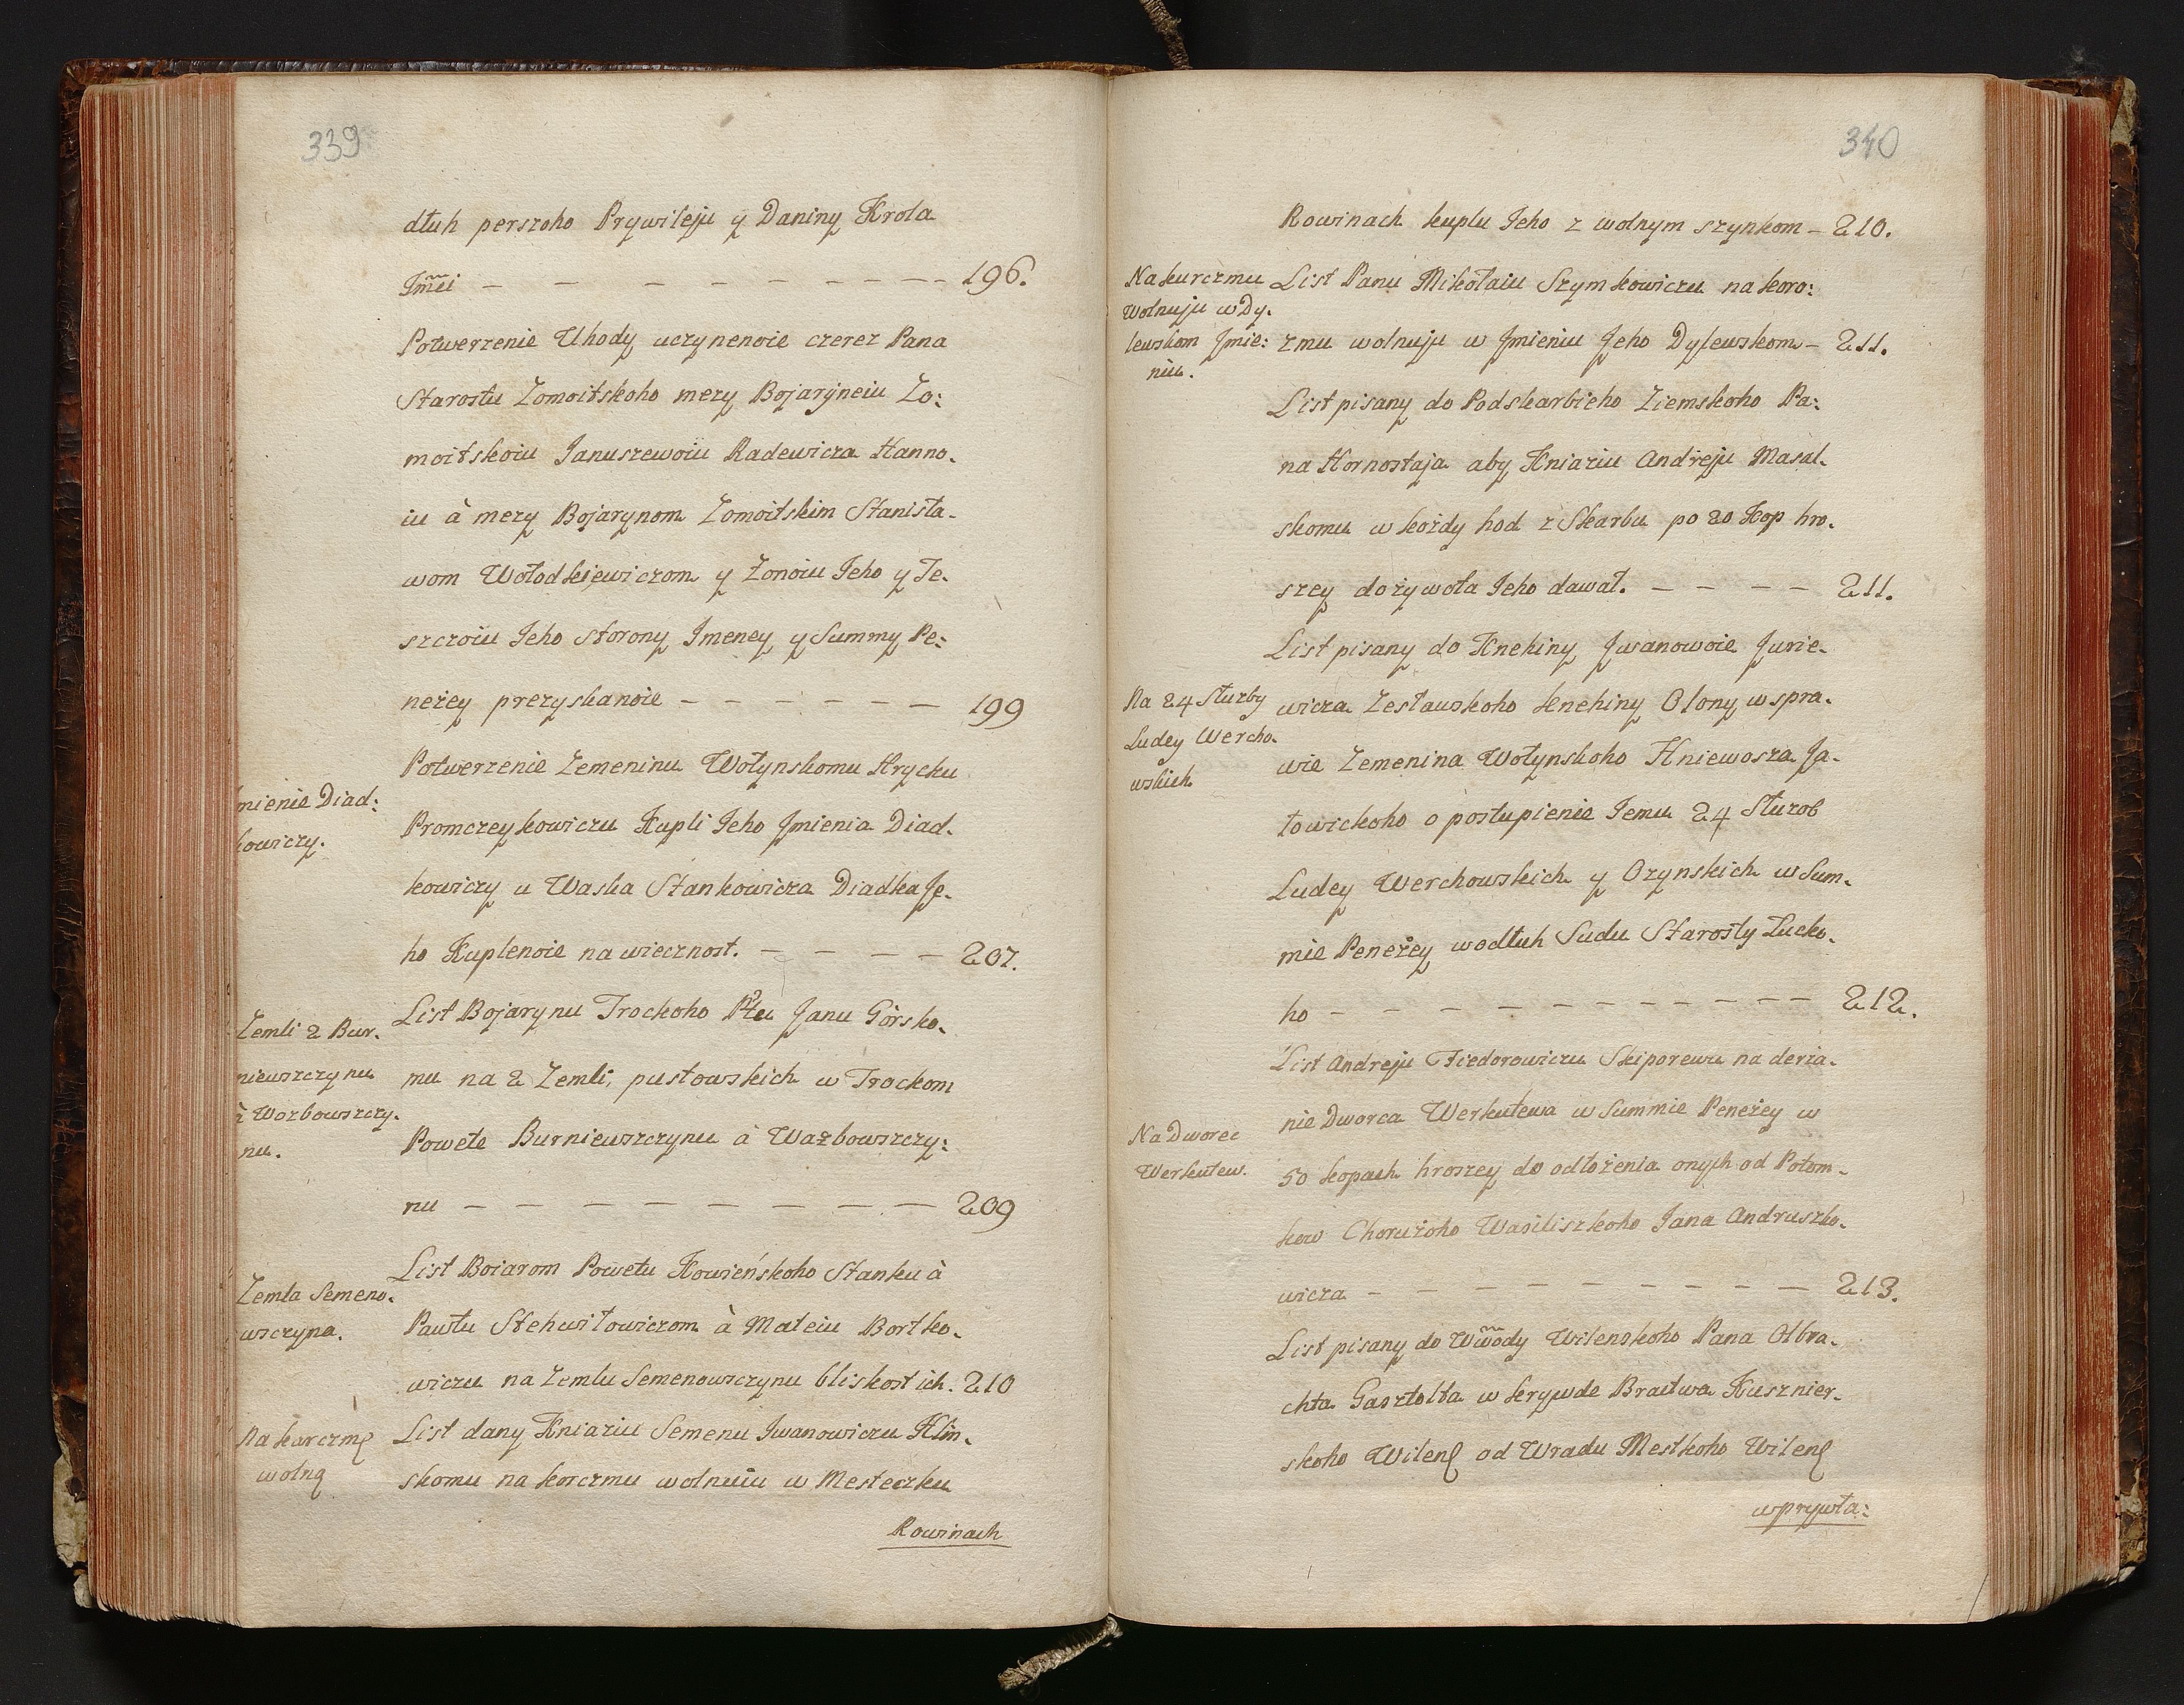 339
dłuh perszoho Prywileju y Daniny Krola
Jm̃ci — — — — — — — — 196.
Potwerzenie Uhody uczynenoie czerez Pana
Starostu Zomoitskoho mezy Bojaryneiu Zo:
moitskoiu Januszewoiu Radewicza Hanno-
iu à mezy Bojarynom Zomoitskim Stanisła-
wom Wołodkiewiczom y Zonoiu Jeho y Te-
szczoiu Jeho storony Jmeney y Summy Pe:
neżey prezyskanoie — — — — — — 199
Potwerzenie Zemeninu Wołynskomu Hrycku
mienie Diad:
kowiczy.
Promczeykowiczu Kupli Jeho Jmienia Diad-
kowiczy u Waska Stankowicza Diadka Je-
ho Kuplenoie na wiecznost. — — — — 207.
List Bojarynu Trockoho Ptu Janu Górsko-
Zemli 2 Bur-
niewszczynu
à Wozbowszczy-
nu.
mu na 2 Zemli, pustowskich w Trockom
Powete Burniewszczynu àWażbowszczy:
nu — — — — — — — — 209
List Boiarom Powetu Kowieńskoho Stanku à
Zemla Semeno-
wsczyna.
Pawłu Stehwiłowiczom à Mateiu Bortko-
wiczu na Zemlu Semenowsczynu bliskost ich. 210
Na karczmę
wolną
List dany Kniaziu Semenu Jwanowiczu Hlin-
skomu na korczmu wolnuiu w Mesteczku
Rowinach
340
Rowinach kuplu Jeho z wolnym szynkom — 210.
Na kurczmu
wolnuju w Dy-
lewskom Jmie:
niu.
List Panu Mikołaiu Szymkowiczu na koro:
zmu wolnuju w Jmieniu Jeho Dylewskom — 211.
List pisany do Podskarbieho Ziemskoho Pa:
na Hornostaja aby Kniaziu Andreju Masal-
skomu w kożdy hod z Skarbu po 20 Kop hro-
szey do żywota Jeho dawał. — — — — 211.
List pisany do Knehiny Jwanowoie Jurie-
Na 24 Służby
Ludey Wercho-
wskich
wicza Zesławskoho knehiny Olony w spra-
wie Zemenina Wołynskoho Hniewosza Ja-
łowickoho o postupienie Jemu 24 Służob
Ludey Werchowskich y Ozynskich w Sum-
mie Peneżey wodłuh Sudu Starosty Łucko-
ho — — — — — — — — — 212.
List Andreju Fiedorowiczu Skiporewu na derża-
Na Dworec
Werkutew.
nie Dworca Werkutewa w Summie Peneżey w
50 kopach hroszey do odłożenia onych od Potom-
kow Choružoho Wasiliszkoho Jana Andruszko-
wicza — — — — — — — — 213.
List pisany do Ww̃ody Wilenskoho Pana Olbra-
chta Gasztolta w krywde Bractwa Kusznier-
skoho Wilenſ od Wradu Mestkoho Wilenſ
w prywła: